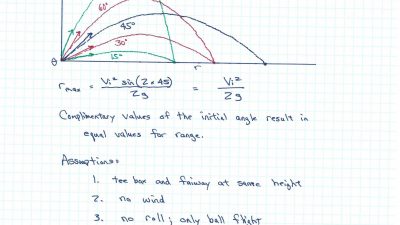 60°
45°
30°
15°
θ
r
r max = Vi² sin(2×45) / 2g = Vi² / 2g
Complimentary values of the initial angle result in
equal values for range.
Assumptions:
1. tee box and fairway at same height
2. no wind
3. no roll; only ball flight